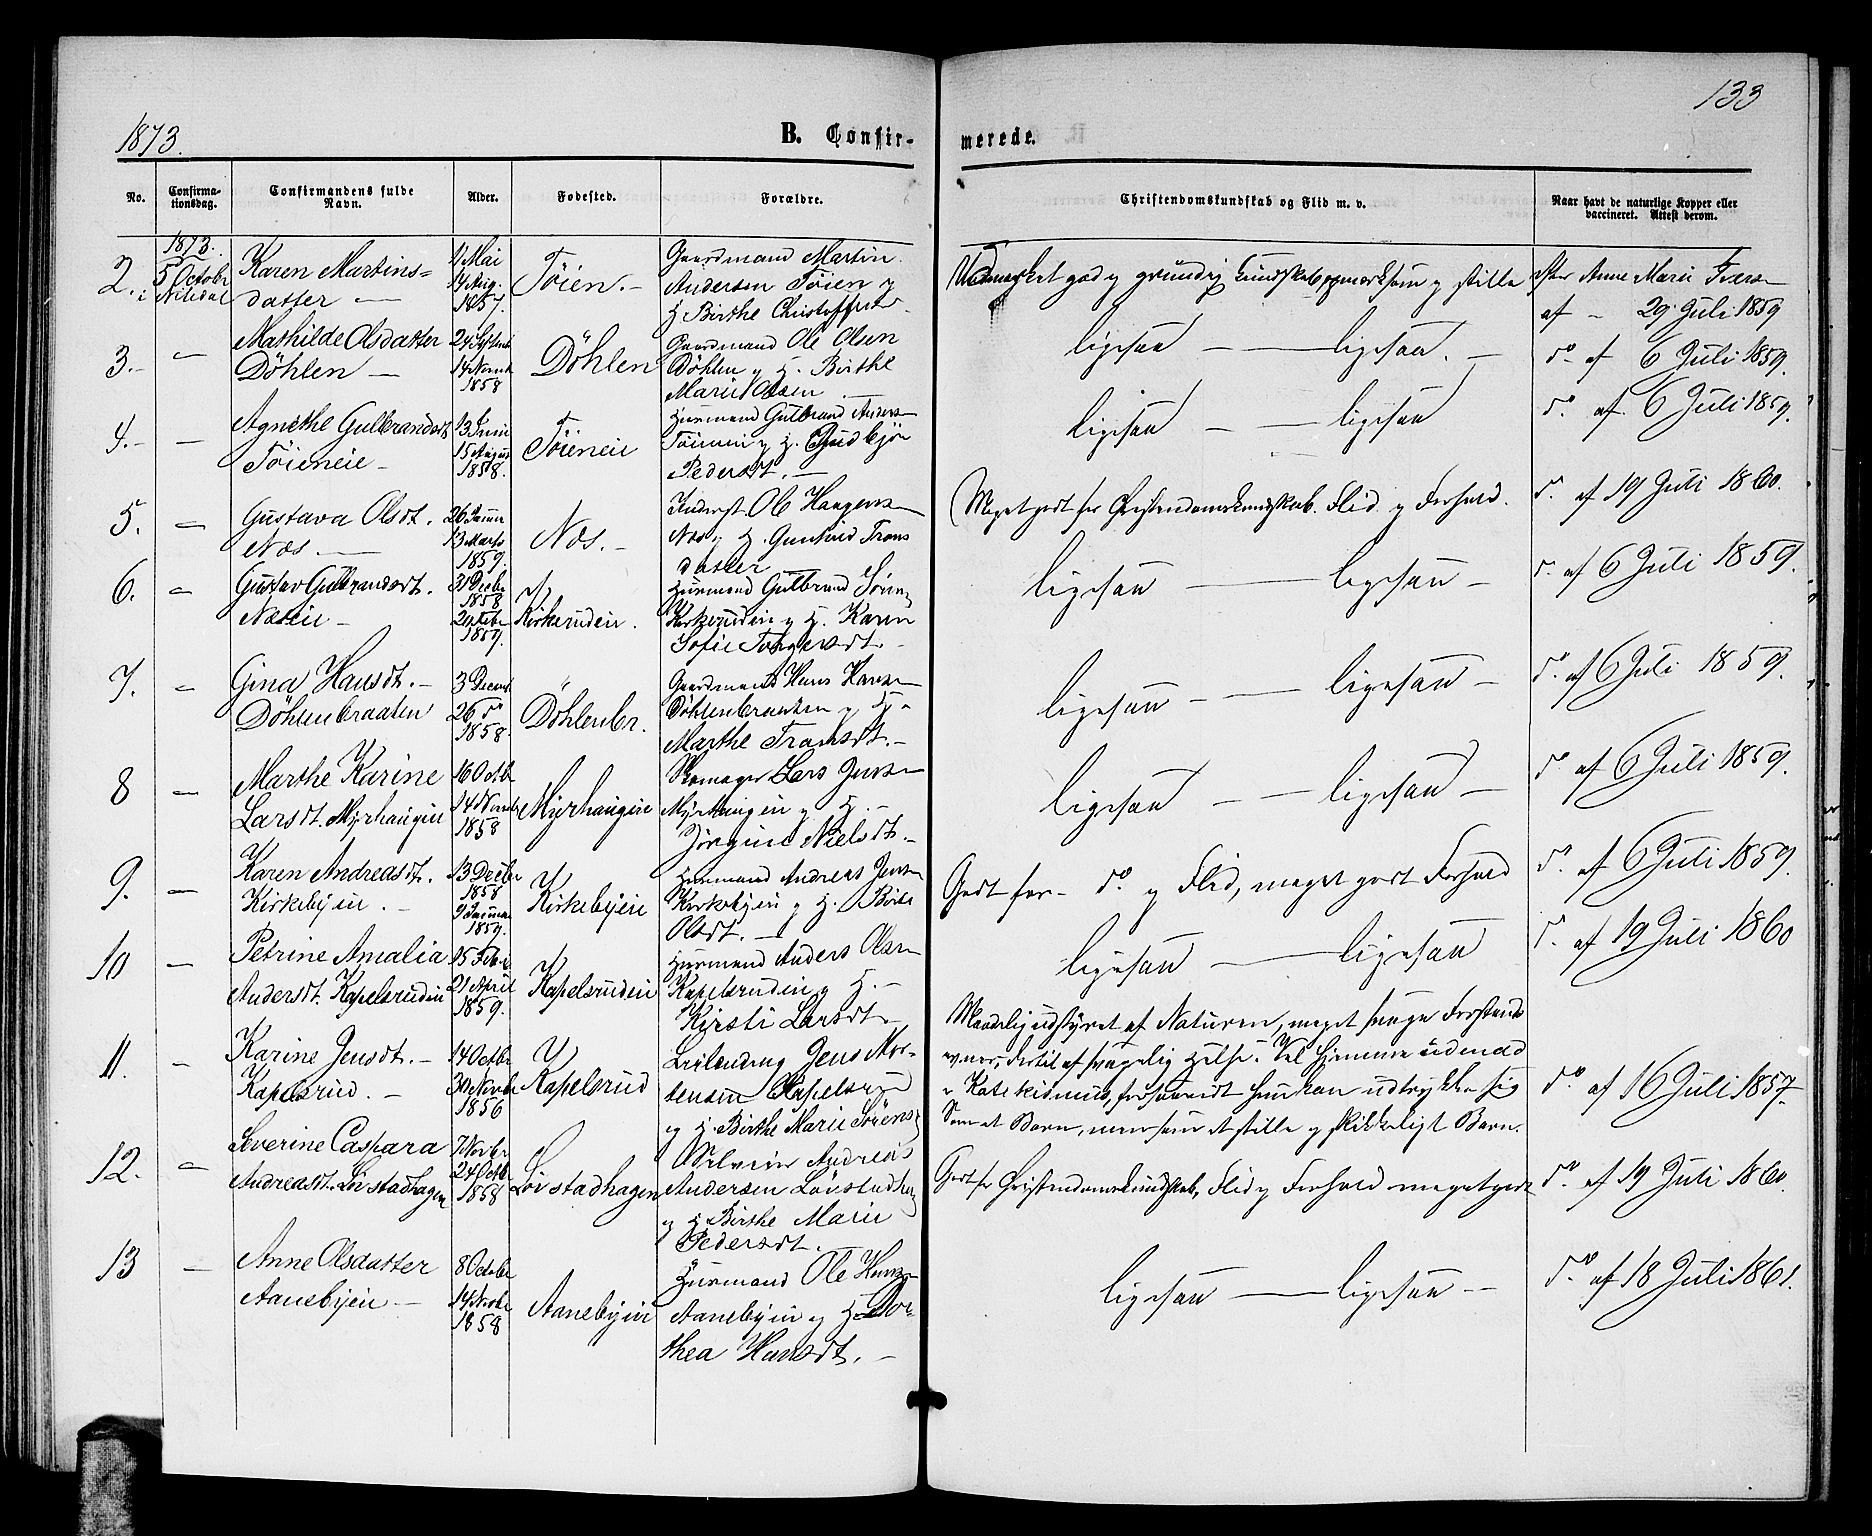 133
1873.
B. Confir- merede.
No.
Confirma-
tionsdag.
Confirmandens fulde
Navn.
Alder.
Fødested.
Forældre.
Christendomskundskab og Flid m. v.
Naar havt de naturlige Kopper eller
vaccineret. Attest derom.
1873.
2. 5 October
i Nitedal
Karen Martins=
datter —
11 Mai
14 Aug.
1857.
Töien. —
Gaardmand Martin
Andersen Töien og
H. Birthe Christoffersd
Udmærket god og grundig Kundskab opmærksom og stille
efter Anne Marie Iversen
af — 29 Juli 1859
3. — Mathilde Olsdatter
Döhlen —
24 Septemb
14 Novemb
1858
Döhlen
Gaardmand Ole Olsen
Döhlen og H. Birthe
Marie Olsen
ligesaa — ligesaa. —
do af 6 Juli 1859.
4. — Agnethe Gulbrandsdt
Töieneie —
13 Juni
15 August
1858.
Töieneie
Huusmand Gulbrand Anders
Töieneie og H. Gudbjör
Pedersdt. —
ligesaa — — ligesaa
do af 6 Juli 1859.
5. — Gustava Olsdt.
Næs —
26 Januar
13 Marts
1859.
Næs. —
Inderst Ole Haagens
Næs og H. Gunhild Frans
datter
Meget godt for Christendomskundskab. Flid og Forhold.
do af 19 Juli 1860.
6. — Gustav Gulbrandsdt.
Næseie —
31 Decbr
1858
2 Febr
1859.
Kirkerudeie.
Huusmand Gulbrand Sören
Kirkerudeie og H. Karen
Sofie Torgersdt.
ligesaa — ligesaa —
do af 6 Juli 1859.
7. — Gina Hansdt. —
Döhlenbraaten
3 Decemb
26 do
1858.
Döhlenbr.
Gaardmand Hans Hansen
Döhlenbraaten og H.
Marthe Fransdt. —
ligesaa — ligesaa —
do af 6 Juli 1859.
8 — Marthe Karine
Larsdt. Myrhaugen
16 Octbr
14 Novembr
1858
Myrhaugen
Skomager Lars Jensen
Myrhaugen og H. —
Jörgine Nielsdt. —
ligesaa — — ligesaa —
do af 6 Juli 1859.
9. — Karen Andreasdt.
Kirkebyeie. —
13 Decbr
1858
9 Januar
1859.
Kirkebyeie
Huusmand Andreas Jensen
Kirkebyeie og H. Berte
Olsdt. —
Godt for — do og Flid, meget godt Forhold
do af 6 Juli 1859.
10 — Petrine Amalia
Andersdt. Kapelsrudeie
15 Febr
21 April
1859.
Kapelsrudeie
Huusmand Anders Olsen
Kapelsrudeie og H. —
Kirsti Larsdt —
ligesaa — ligesaa
do af 19 Juli 1860
11. — Karine Jensdt. —
Kapelsrud. —
14 Octbr
30 Novbr
1856
Kapelsrud
Leilending Jens Mor-
tensen Kapelsrud
og H. Birthe Marie Sörens
Maadelig udstyret af Naturen, meget svage Forstands
evner, dertil af svagelig Helse. Vel hjemme udenad
i Katekismus, forsaavidt hun kan udtrykke sig
Som et Barn, men som et stille og skikkeligt Barn.
do af 16 Juli 1857.
12. — Severine Caspara
Andreasdt. Löstadhagen
7 Novbr
24 Octbr
1858
Löstadhagen
Selveier Andreas
Andersen Löstadhag
og H. Birthe Marie
Pedersdt.
Godt for Christendomskundskab, Flid og Forhold meget godt
do af 19 Juli 1860.
13 — Anne Olsdatter
Aanebyeie —
8 October
14 Novbr
1858
Aanebyeie
Huusmand Ole Hansen
Aanebyeie og H. Dor-
thea Hansdt. —
ligesaa — ligesaa —
do af 18 Juli 1861.